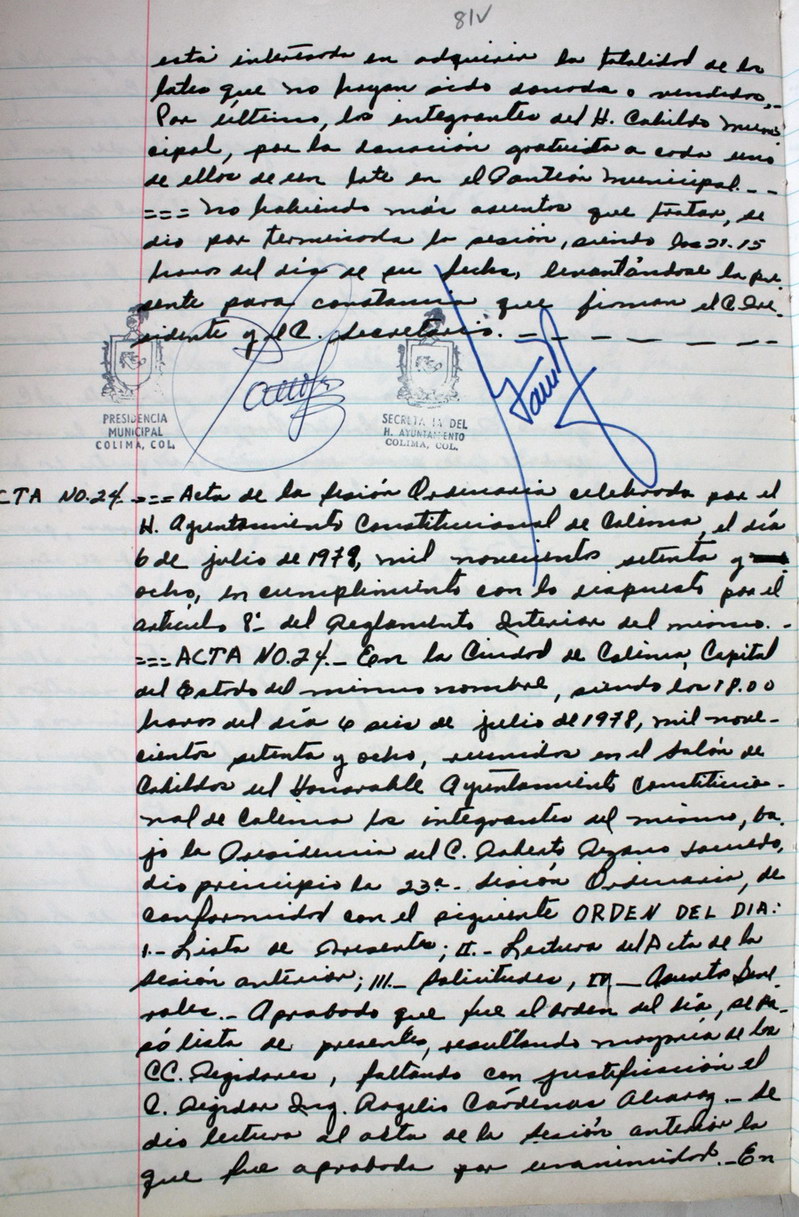 81V
está interesado en adquirir la totalidad de los
lotes que no hayan sido donados o vendidos.-
Por último, los integrantes del H. Cabildo Muni-
cipal, por la donación gratuita a cada uno
de ellos de un lote en el Panteón Municipal. - -
=== No habiendo más asuntos que tratar, se
dio por terminada la sesión, siendo las 21.15
horas del día de su fecha, levantándose la pre-
sente para constancia que firman el C. Pre-
sidente y el C. Secretario. - - - - - -
PRESIDENCIA
MUNICIPAL
COLIMA, COL.
SECRETARIA DEL
H. AYUNTAMIENTO
COLIMA, COL.
CTA NO. 24 === Acta de la Sesión Ordinaria celebrada por el
H. Ayuntamiento Constitucional de Colima, el día
6 de julio de 1978, mil novecientos setenta y
ocho, en cumplimiento con lo dispuesto por el
artículo 8º del Reglamento Interior del mismo. -
=== ACTA NO. 24.- En la Ciudad de Colima, Capital
del Estado del mismo nombre, siendo las 18.00
horas del día 6 seis de julio de 1978, mil nove-
cientos setenta y ocho, reunidos en el Salón de
Cabildos del Honorable Ayuntamiento Constitucio-
nal de Colima los integrantes del mismo, ba-
jo la Presidencia del C. Roberto
dio principio la 23a.- Sesión Ordinaria, de
conformidad con el siguiente ORDEN DEL DIA:
I.- Lista de Presentes; II.- Lectura del Acta de la
sesión anterior; III.- Solicitudes, IV.- Asuntos Gene-
rales.- Aprobado que fue el orden del día, se pa-
só lista de presentes, resultando mayoría de los
CC. Regidores, faltando con justificación el
C. Regidor Ing. Rogelio Cárdenas Alvarez.- Se
dio lectura al acta de la sesión anterior la
que fue aprobada por unanimidad.- En